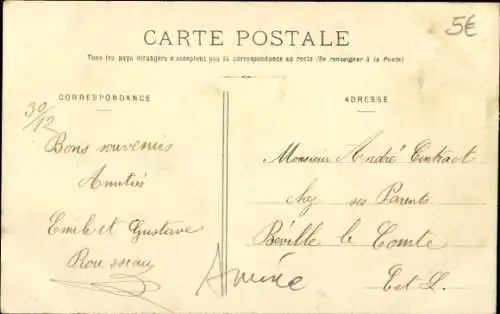 5€
CARTE POSTALE
Tous les pays étrangers n'acceptent pas la correspondance au recto (Se renseigner à la Poste)
CORRESPONDANCE
ADRESSE
30/12
Bons souvenirs
Amitiés
Emile et Gustave
Rousseau
Monsieur André
chez ses Parents
Béville le Comte
E et L.